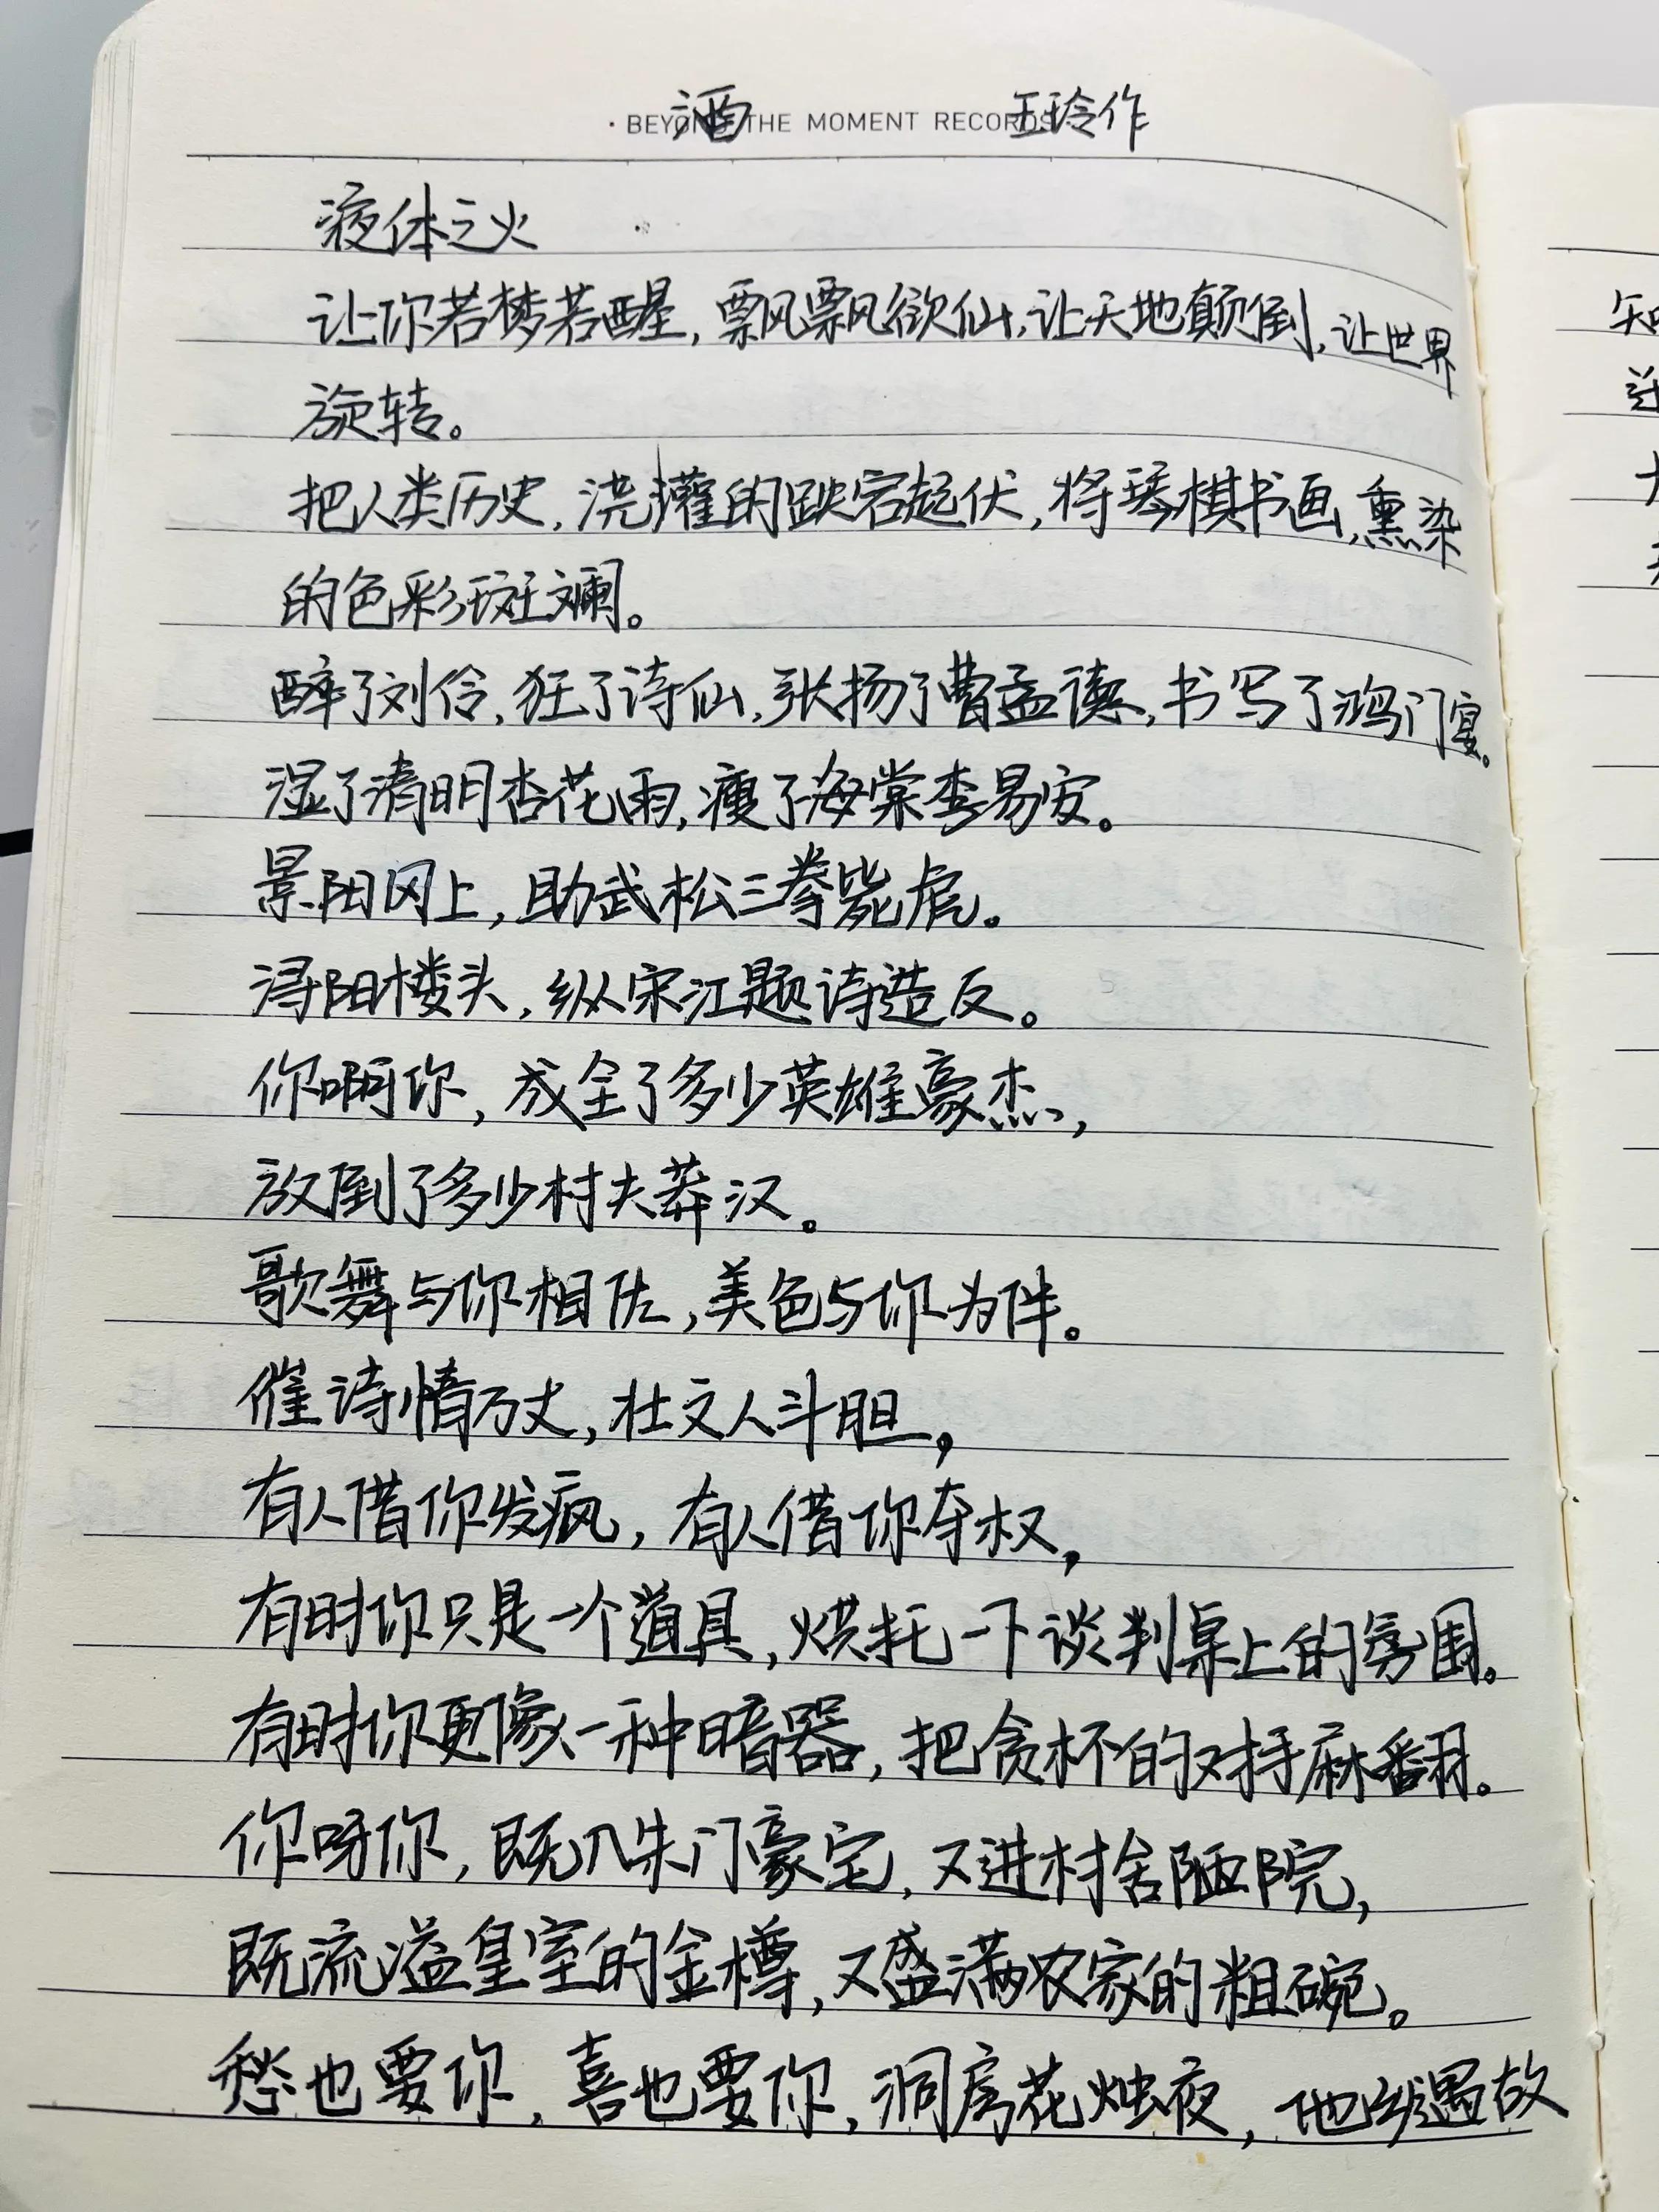 · BEYOND THE MOMENT RECORDS
酒 王玲作
液体之火
让你若梦若醒,飘飘欲仙,让天地颠倒,让世界
旋转。
把人类历史,浇灌的跌宕起伏,将琴棋书画,熏染
的色彩斑斓。
醉了刘伶,狂了诗仙,张扬了曹孟德,书写了鸿门宴。
湿了清明杏花雨,瘦了海棠李易安。
景阳冈上,助武松三拳毙虎。
浔阳楼头,纵宋江题诗造反。
你啊你,成全了多少英雄豪杰,
放倒了多少村夫莽汉。
歌舞与你相佐,美色与你为伴。
催诗情万丈,壮文人斗胆,
有人借你发疯,有人借你夺权,
有时你只是一个道具,烘托一下谈判桌上的氛围。
有时你更像一种暗器,把贪杯的对手麻翻。
你呀你,既入朱门豪宅,又进村舍陋院,
既流溢皇室的金樽,又盛满农家的粗碗。
愁也要你,喜也要你,洞房花烛夜,他乡遇故